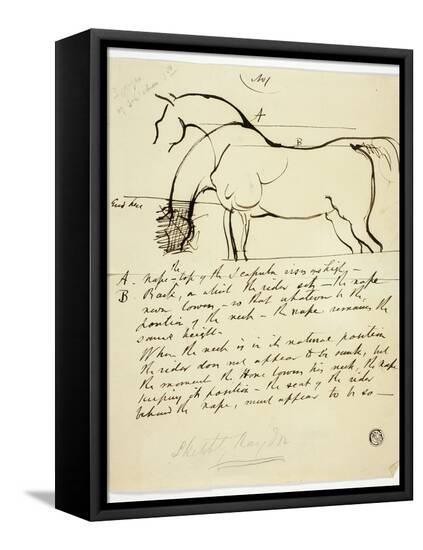 No 1
A
B
Ground line
A. Nape - the top of the Scapula rises as high -
B Back, on which the rider sits - the nape
never lowers - so that whatever be the
position of the neck - the nape remains the
same height -
When the neck is in its natural position
the rider does not appear to be sunk, but
the moment the Horse lowers his neck, the nape
keeping its position - the seat of the rider
behind the nape, must appear to be so -
Sketch by Haydon